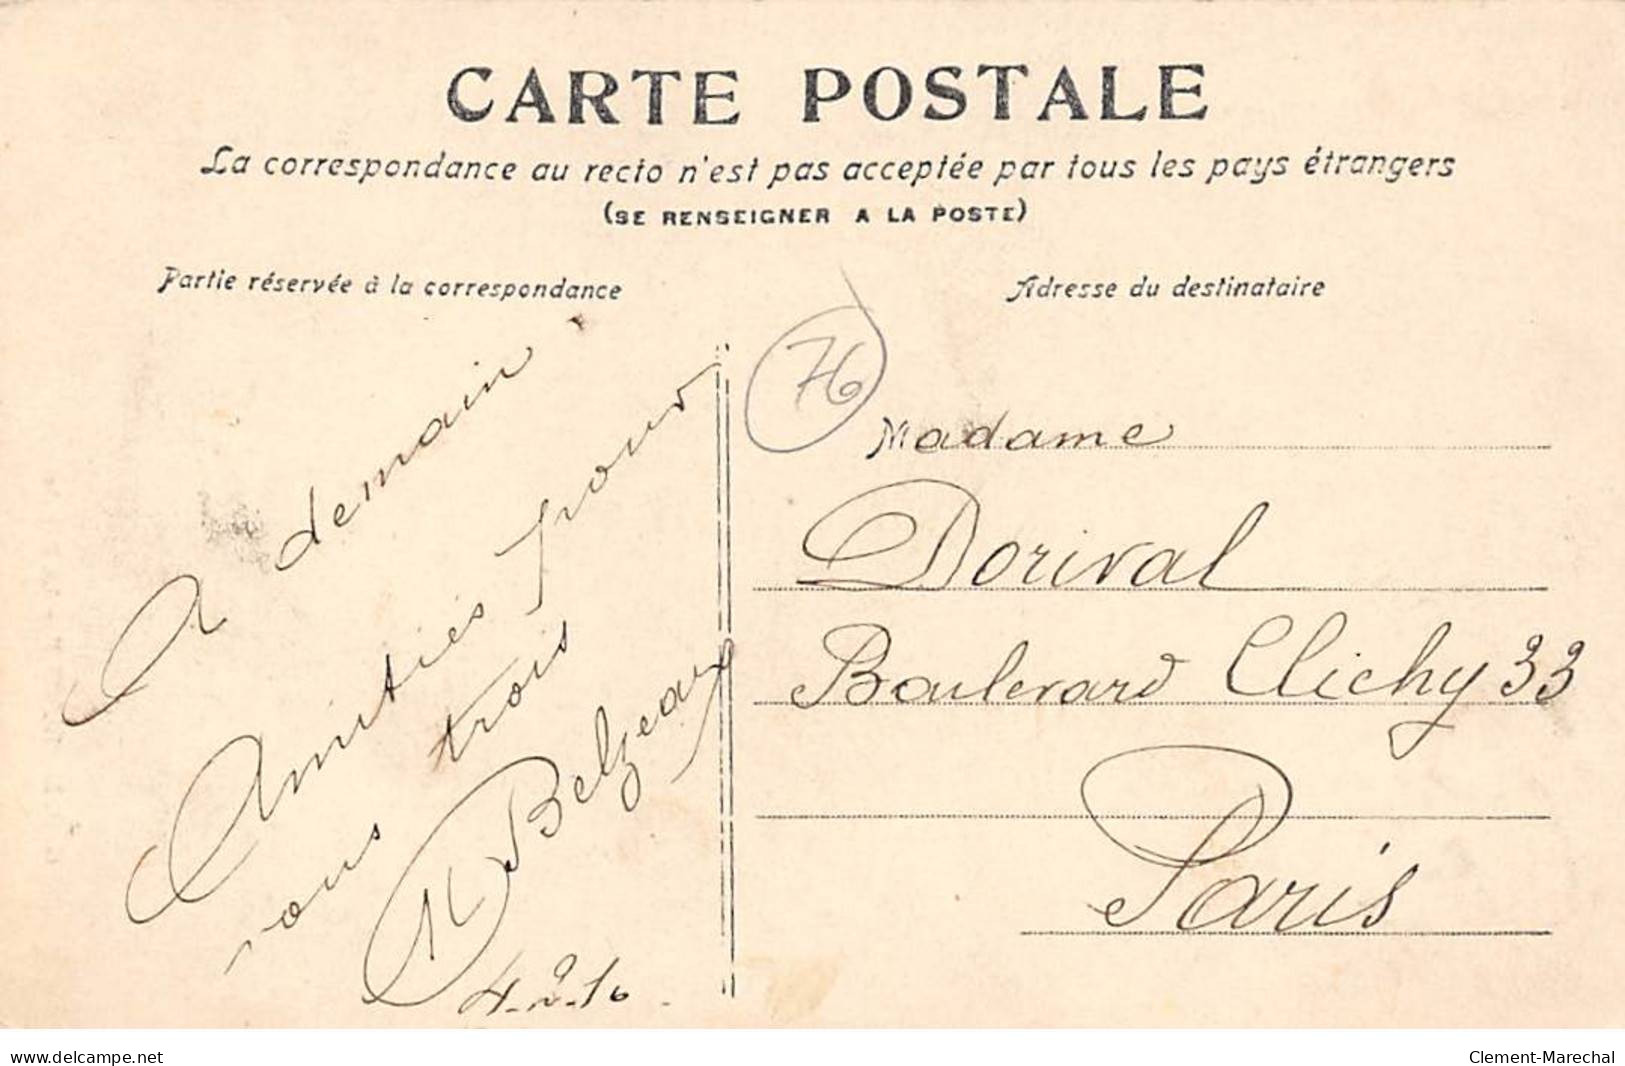 CARTE POSTALE
La correspondance au recto n'est pas acceptée par tous les pays étrangers
(SE RENSEIGNER A LA POSTE)
Partie réservée à la correspondance
Adresse du destinataire
A demain
Amitiés pour
vous trois
Belzeaux
4-2-10
76
Madame
Dorival
Boulevard Clichy 33
Paris
www.delcampe.net
Clement-Marechal